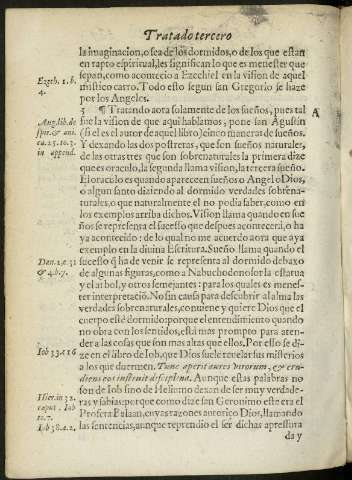 Tratado tercero
la imaginacion, o sea de los dormidos, o de los que estan
en rapto espiritual, les significan lo que es menester que
sepan, como acontecio a Ezechiel en la vision de aquel
mistico carro. Todo esto segun san Gregorio se haze
por los Angeles.
Ezech. 1. b.
4.
3 ¶ Tratando aora solamente de los sueños, pues tal
fue la vision de que aqui hablamos, pone san Agustin
(si el es el autor de aquel libro) cinco maneras de sueños.
Y dexando las dos postreras, que son sueños naturales,
de las otras tres que son sobrenaturales la primera dize
que es oraculo, la segunda llama vision, la tercera sueño.
A
Aug. lib. de
spir. & ani.
ca. 25. to. 3.
in append.
El oraculo es quando aparece en sueños o Angel o Dios,
o algun santo diziendo al dormido verdades sobrena-
turales, o que naturalmente el no podia saber, como en
los exemplos arriba dichos. Vision llama quando en sue
ños se representa el sucesso que despues acontecerà, o ha
ya acontecido: de lo qual no me acuerdo aora que aya
exemplo en la diuina Escritura. Sueño llama quando el
sucesso q̃ ha de venir se representa al dormido debaxo
de algunas figuras, como a Nabuchodonosor la estatua
y el arbol, y otros semejantes: para los quales es menes-
ter interpretaciõ. No sin causa para descubrir al alma las
Dan. 2. e. 31
& 4. b. 7.
verdades sobrenaturales, conuiene y quiere Dios que el
cuerpo estè dormido: porque el entendimiento quando
no obra con los sentidos, està mas prompto para aten-
der a las cosas que son mas altas que ellos. Por esso se di-
ze en el libro de Iob, que Dios suele reuelar sus misterios
a los que duermen. Tunc aperit aures virorum, & eru-
diens eos instruit disciplina. Aunque estas palabras no
Iob 33. c. 16
son de Iob sino de Heliu no dexan de ser muy verdade-
ras y sabias: porque como dize san Geronimo este era el
Profeta Balaan, cuyas razones autorizò Dios, llamando
las sentencias, aunque reprendio el ser dichas a pressura
Hier. in 32.
caput. Iob
to. 7.
Iob 38. a. 2.
da y